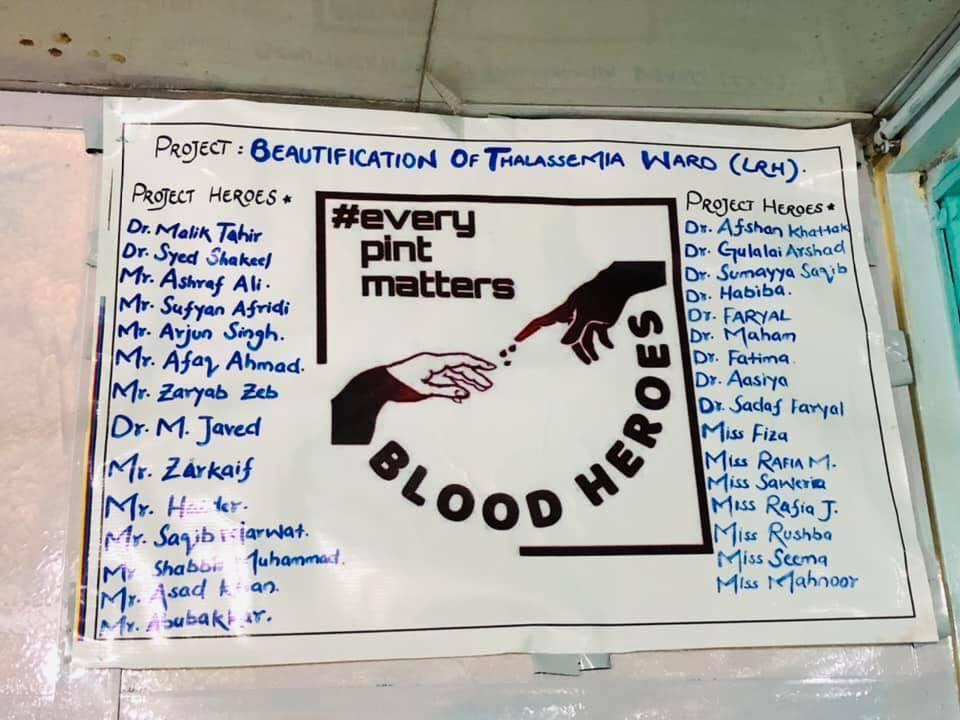 PROJECT : BEAUTIFICATION OF THALASSEMIA WARD (LRH).
PROJECT HEROES *
Dr. Malik Tahir
Dr. Syed Shakeel
Mr. Ashraf Ali.
Mr. Sufyan Afridi
Mr. Arjun Singh.
Mr. Afaq Ahmad.
Mr. Zaryab Zeb
Dr. M. Javed
Mr. Zarkaif
Mr. Haider.
Mr. Saqib Marwat.
Mr. Shabbir Muhammad.
Mr. Asad Khan.
Mr. Abubakkar.
#every
pint
matters
BLOOD HEROES
PROJECT HEROES *
Dr. Afshan Khattak
Dr. Gulalai Arshad
Dr. Sumayya Saqib
Dr. Habiba.
Dr. FARYAL
Dr. Maham
Dr. Fatima
Dr. Aasiya
Dr. Sadaf Faryal
Miss Fiza
Miss RAFIA M.
Miss Saweria
Miss Rafia J.
Miss Rushba
Miss Seema
Miss Mahnoor